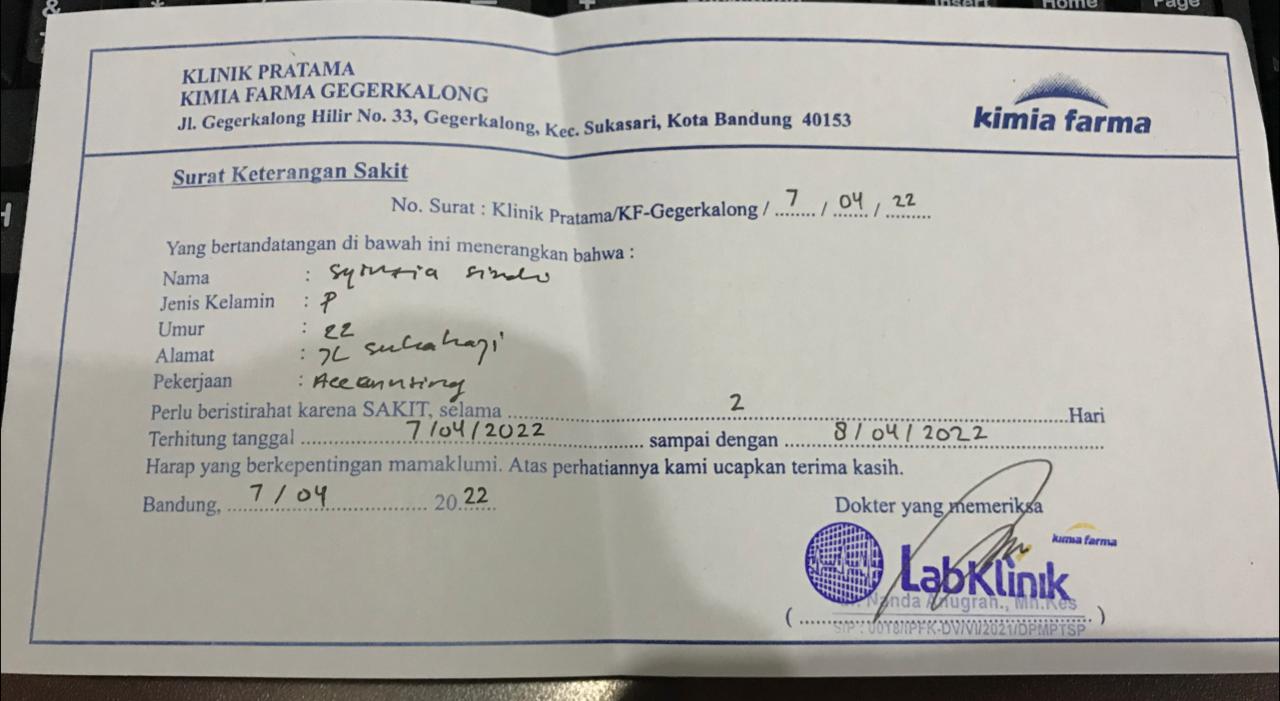 Insert Home Page
KLINIK PRATAMA
KIMIA FARMA GEGERKALONG
Jl. Gegerkalong Hilir No. 33, Gegerkalong, Kec. Sukasari, Kota Bandung 40153
kimia farma
Surat Keterangan Sakit
No. Surat : Klinik Pratama/KF-Gegerkalong / 7 / 04 / 22
Yang bertandatangan di bawah ini menerangkan bahwa :
Nama :
Jenis Kelamin : P
Umur : 22
Alamat : JL
Pekerjaan : Accounting
Perlu beristirahat karena SAKIT, selama 2 Hari
Terhitung tanggal 7/04/2022 sampai dengan 8/04/2022
Harap yang berkepentingan mamaklumi. Atas perhatiannya kami ucapkan terima kasih.
Bandung, 7/04 2022
Dokter yang memeriksa
kimia farma
LabKlinik
Nanda Anugrah., Mh.Kes
( )
SIP : 0018/IPFK-DV/VI/2021/DPMPTSP